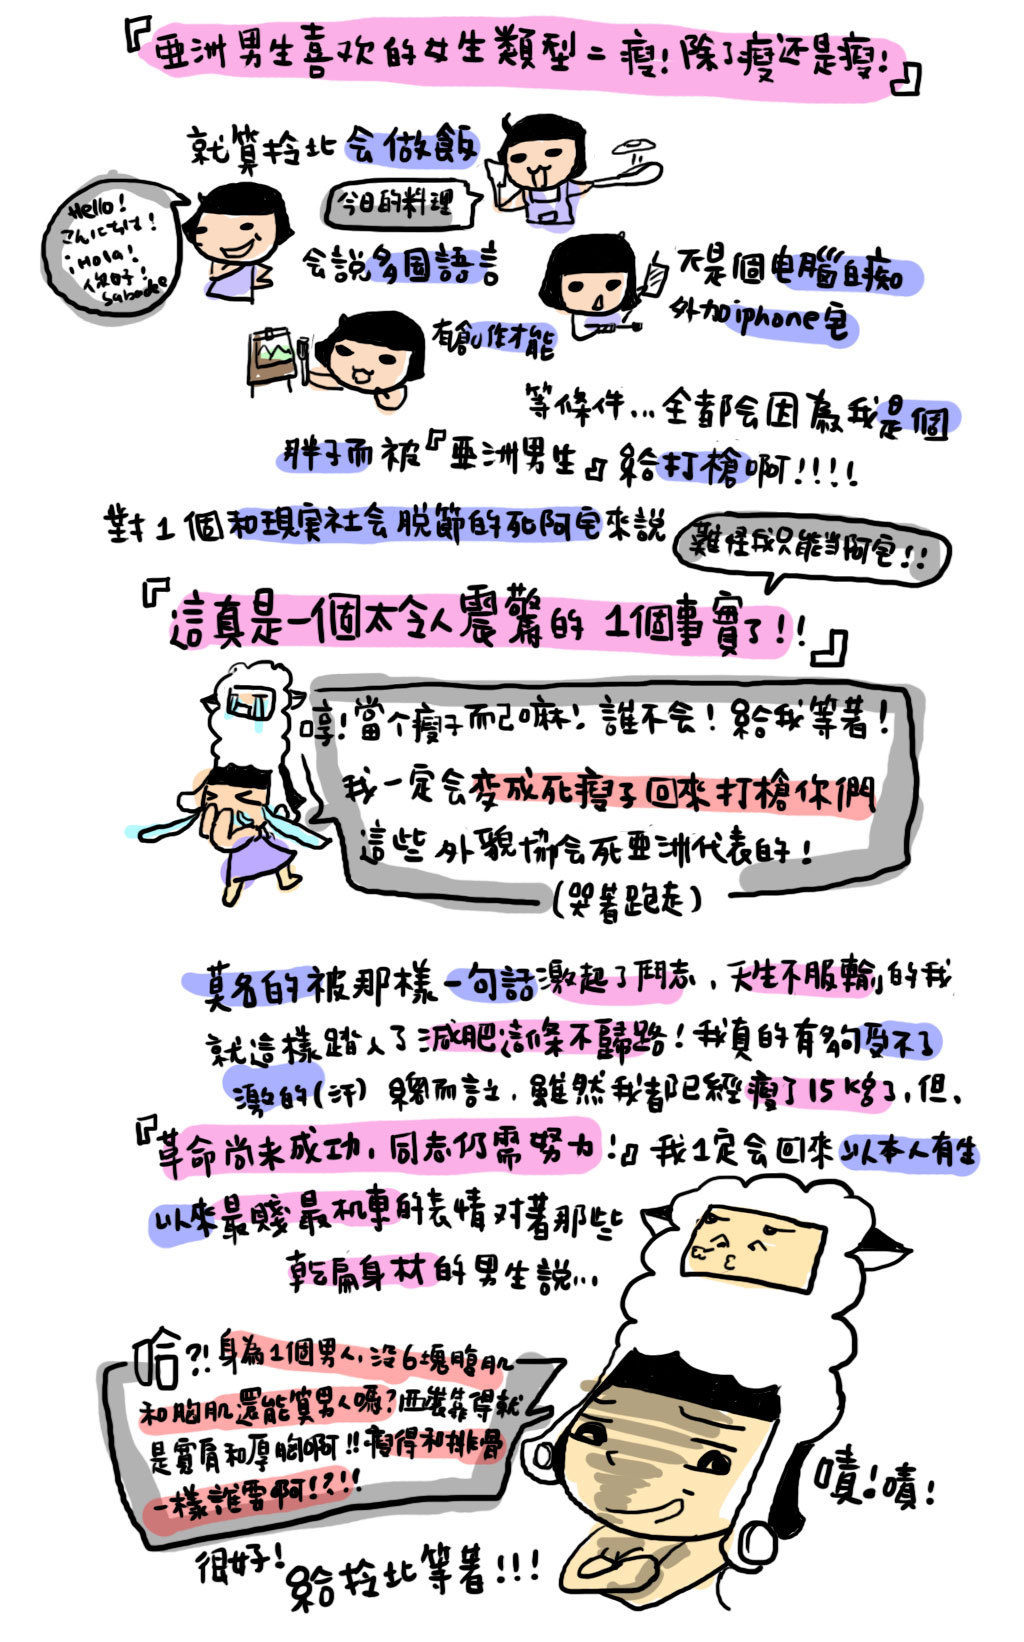 『亞洲男生喜欢的女生類型=瘦!除了瘦还是瘦!』
就算拎北会做飯
今日的料理
Hello!
こんにちは!
¡Hola!
你好!
会説多国語言
不是個电腦白痴
外加iphone宅
有創作才能
等條件...全都会因為我是個
胖子而被『亜洲男生』給打槍啊!!!!
對1個和現実社会脱節的死阿宅來説
難怪我只能当阿宅!!
『這真是一個太令人震驚的1個事實了!!』
哼!當个瘦子而己嘛!誰不会!給我等著!
我一定会变成死瘦子回來打槍你們
這些外貌協会死亜洲代表的!
(哭著跑走)
莫名的被那樣一句話激起了鬥志,天生不服輸的我
就這樣踏入了減肥這條不歸路!我真的有夠受不了
激的(汗)總而言之,雖然我都已經瘦了15kg了,但,
『革命尚未成功,同志仍需努力!』我1定会回來以本人有生
以來最賤最机車的表情对著那些
乾扁身材的男生説...
哈?!身為1個男人,沒6塊腹肌
和胸肌還能算男人嗎?西裝靠得就
是寬肩和厚胸啊!!瘦得和排骨
一樣誰要啊!?!!
嘖!嘖!
很好!
給拎北等著!!!